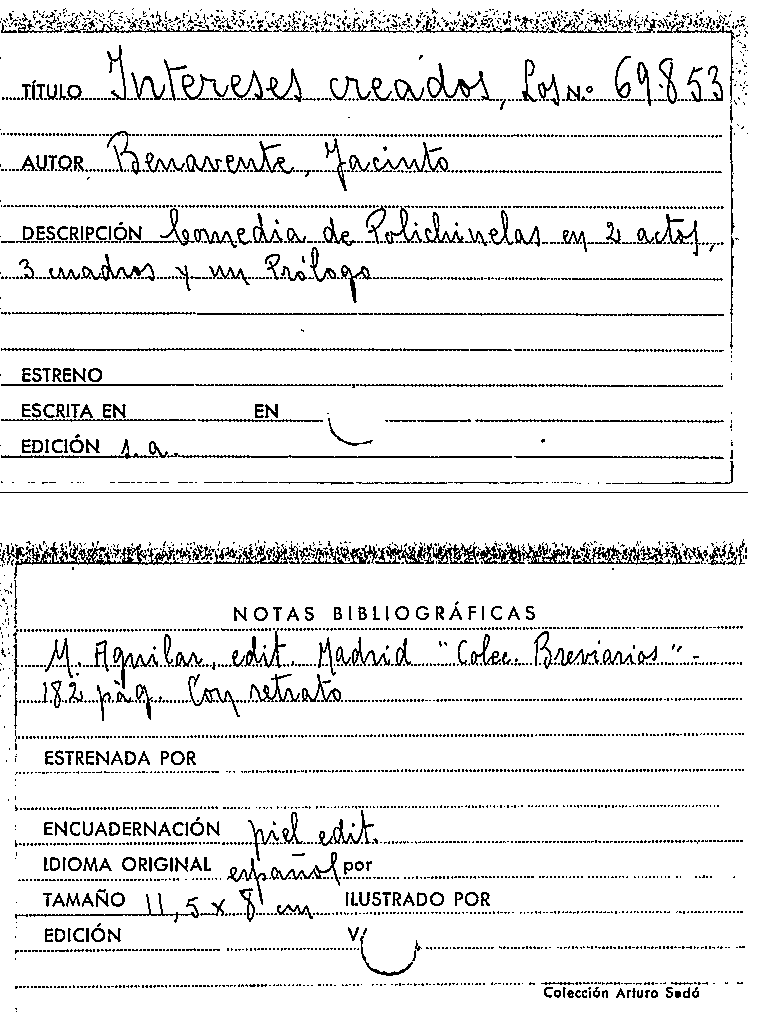 TÍTULO Intereses creados, Los N.º 69.853
AUTOR Benavente, Jacinto
DESCRIPCIÓN Comedia de Polichinelas en 2 actos,
3 cuadros y un Prólogo
ESTRENO
ESCRITA EN EN
EDICIÓN s. a.
NOTAS BIBLIOGRÁFICAS
M. Aguilar, edit. Madrid "Colec. Breviarios" -
182 pàg. Con retrato
ESTRENADA POR
ENCUADERNACIÓN piel edit.
IDIOMA ORIGINAL español por
TAMAÑO 11,5 x 8 cm ILUSTRADO POR
EDICIÓN V/
Colección Arturo Sedó